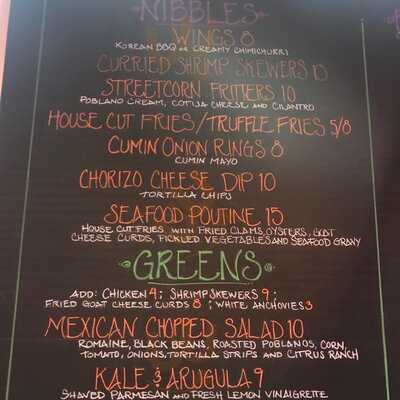 NIBBLES
WINGS 8
KOREAN BBQ OR CREAMY CHIMICHURRI
CURRIED SHRIMP SKEWERS 10
STREETCORN FRITTERS 10
POBLANO CREAM, COTIJA CHEESE AND CILANTRO
HOUSE CUT FRIES/TRUFFLE FRIES 5/8
CUMIN ONION RINGS 8
CUMIN MAYO
CHORIZO CHEESE DIP 10
TORTILLA CHIPS
SEAFOOD POUTINE 15
HOUSE CUT FRIES WITH FRIED CLAMS, OYSTERS, GOAT
CHEESE CURDS, PICKLED VEGETABLES AND SEAFOOD GRAVY
GREENS
ADD: CHICKEN 4; SHRIMP SKEWERS 9;
FRIED GOAT CHEESE CURDS 8; WHITE ANCHOVIES 3
MEXICAN CHOPPED SALAD 10
ROMAINE, BLACK BEANS, ROASTED POBLANOS, CORN,
TOMATO, ONIONS, TORTILLA STRIPS AND CITRUS RANCH
KALE & ARUGULA 9
SHAVED PARMESAN AND FRESH LEMON VINAIGRETTE